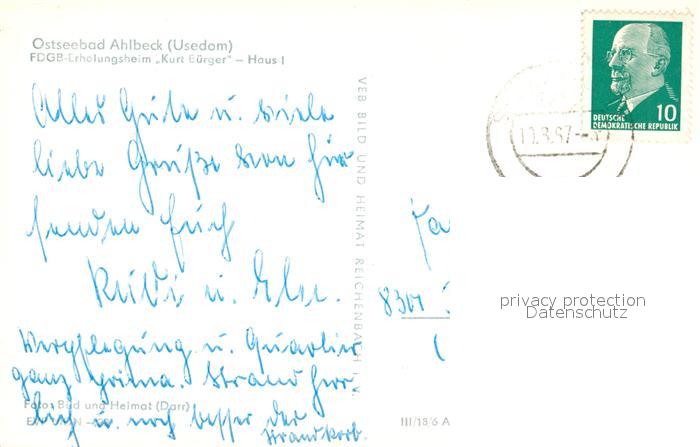 Ostseebad Ahlbeck (Usedom)
FDGB-Erholungsheim „Kurt Bürger" – Haus I
Alles Gute u. viele
liebe Grüße von hier
senden Euch
Rudi u. Else.
Verpflegung u. Quartier
ganz prima. Strand herr-
lich u. noch besser der
Strandkorb.
Foto: Bild und Heimat (Darr)
VEB BILD UND HEIMAT REICHENBACH I. V.
III/18/6 A
DEUTSCHE
DEMOKRATISCHE REPUBLIK
10
privacy protection
Datenschutz